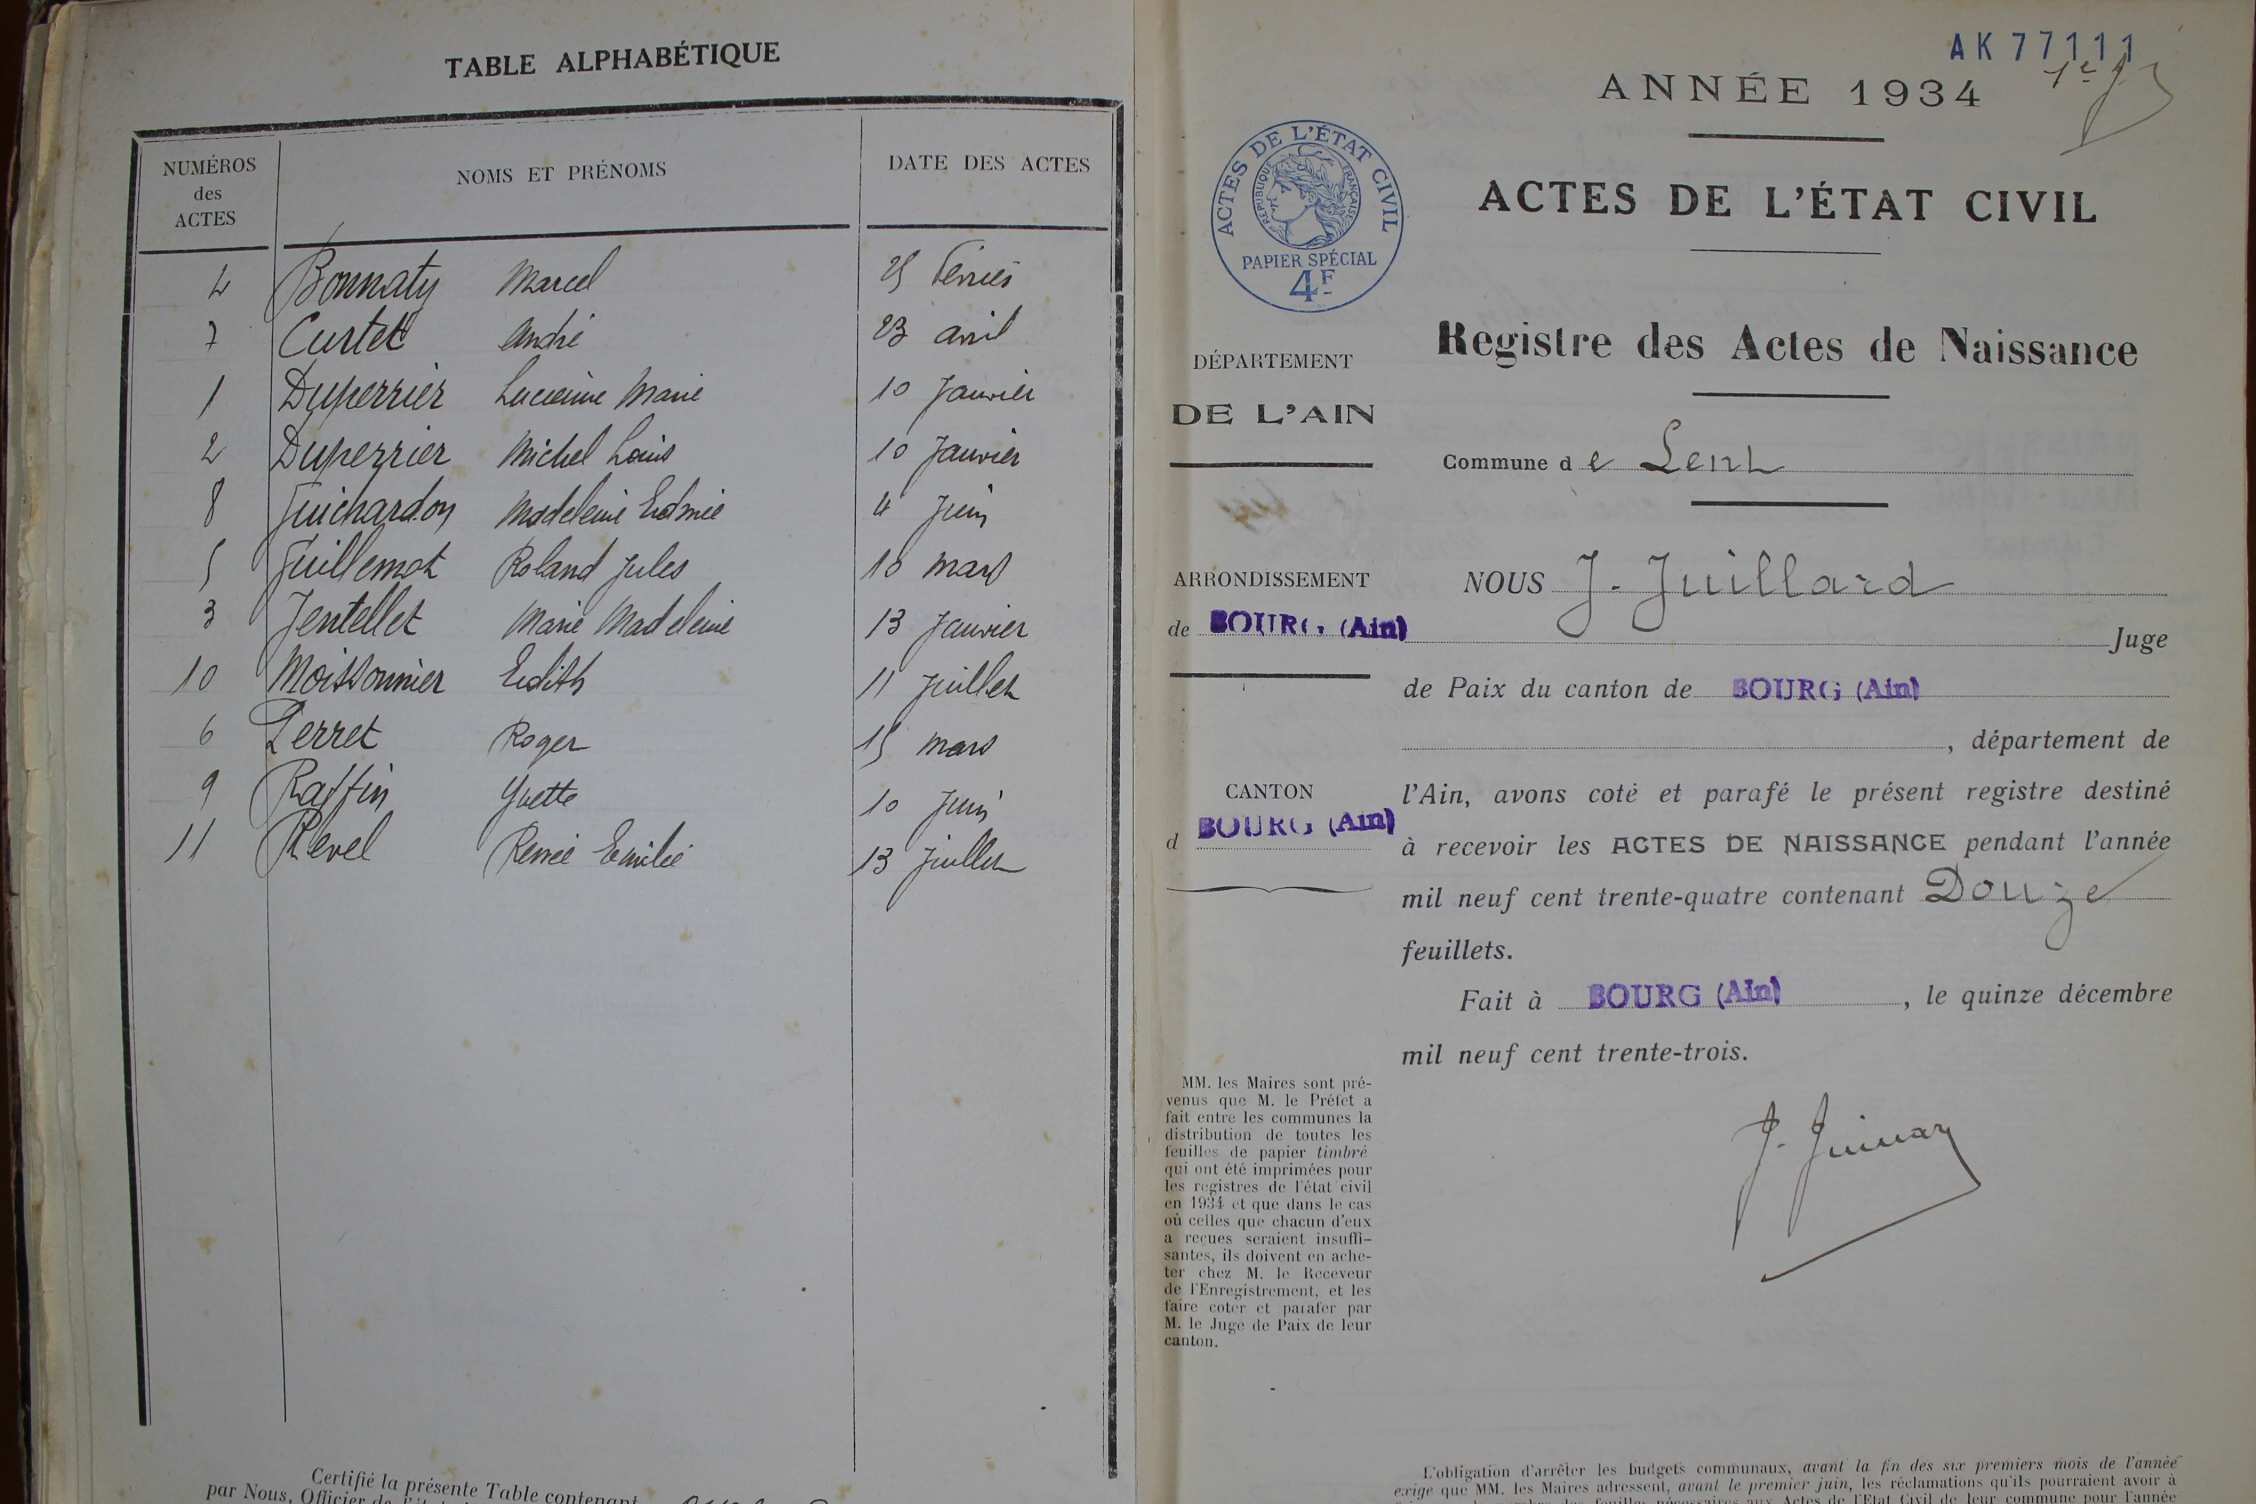 TABLE ALPHABÉTIQUE
NUMÉROS
des
ACTES
NOMS ET PRÉNOMS
DATE DES ACTES
4 Bonnaty Marcel 25 Février
7 Curtet André 23 avril
1 Duperrier Lucienne Marie 10 Janvier
2 Duperrier Michel Louis 10 Janvier
8 Guichardon Madeleine Edmée 4 Juin
5 Guillemot Roland Jules 10 mars
3 Jentellet Marie Madeleine 13 Janvier
10 Moissonnier Edith 11 Juillet
6 Perret Roger 15 mars
9 Raffin Yvette 10 Juin
11 Revel Renée Emilie 13 Juillet
Certifié la présente Table contenant
par Nous, Officier de l'état
AK 77111
1e
ANNÉE 1934
ACTES DE L'ÉTAT CIVIL
ACTES DE L'ÉTAT CIVIL
RÉPUBLIQUE FRANÇAISE
PAPIER SPÉCIAL
4F
Registre des Actes de Naissance
DÉPARTEMENT
DE L'AIN
Commune de Lent
ARRONDISSEMENT
de BOURG (Ain)
CANTON
d BOURG (Ain)
NOUS J. Juillard
Juge
de Paix du canton de BOURG (Ain)
, département de
l'Ain, avons coté et parafé le présent registre destiné
à recevoir les ACTES DE NAISSANCE pendant l'année
mil neuf cent trente-quatre contenant Douze
feuillets.
Fait à BOURG (Ain), le quinze décembre
mil neuf cent trente-trois.
MM. les Maires sont pré-
venus que M. le Préfet a
fait entre les communes la
distribution de toutes les
feuilles de papier timbré
qui ont été imprimées pour
les registres de l'état civil
en 1934 et que dans le cas
où celles que chacun d'eux
a reçues seraient insuffi-
santes, ils doivent en ache-
ter chez M. le Receveur
de l'Enregistrement, et les
faire coter et parafer par
M. le Juge de Paix de leur
canton.
L'obligation d'arrêter les budgets communaux, avant la fin des six premiers mois de l'année
exige que MM. les Maires adressent, avant le premier juin, les réclamations qu'ils pourraient avoir à
feuilles nécessaires aux Actes de l'Etat Civil de leur commune pour l'année